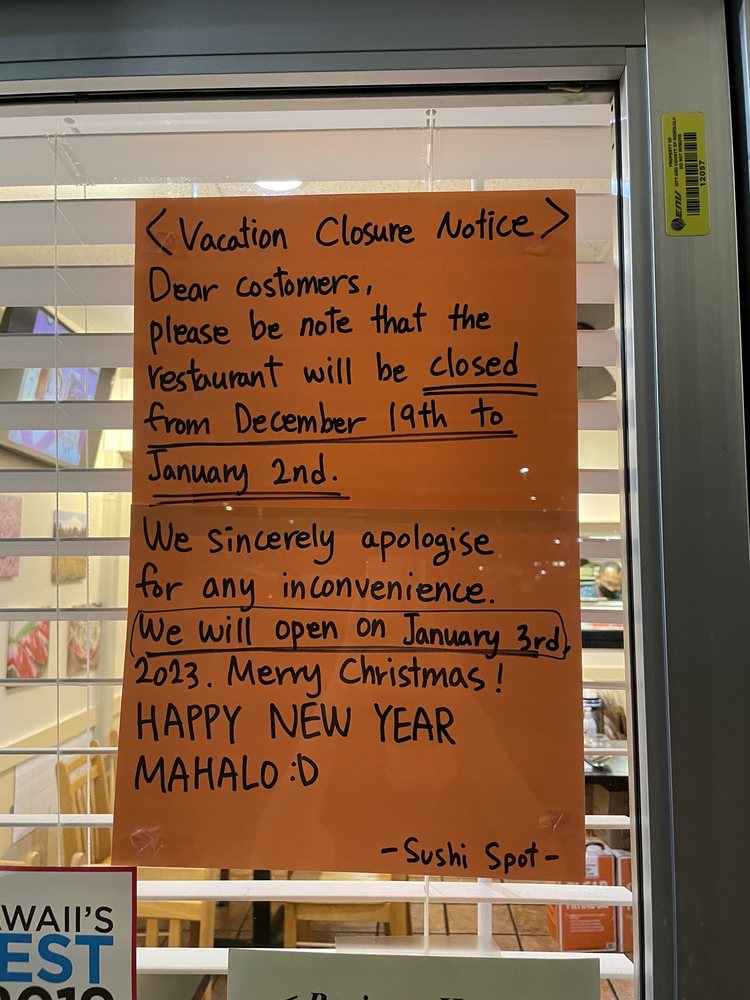 <Vacation Closure Notice>
Dear costomers,
please be note that the
restaurant will be closed
from December 19th to
January 2nd.
We sincerely apologise
for any inconvenience.
We will open on January 3rd,
2023. Merry Christmas!
HAPPY NEW YEAR
MAHALO :D
-Sushi Spot-
PROPERTY OF
CITY AND COUNTY OF HONOLULU
DO NOT REMOVE
ENV
12057
WAII'S
EST
2019